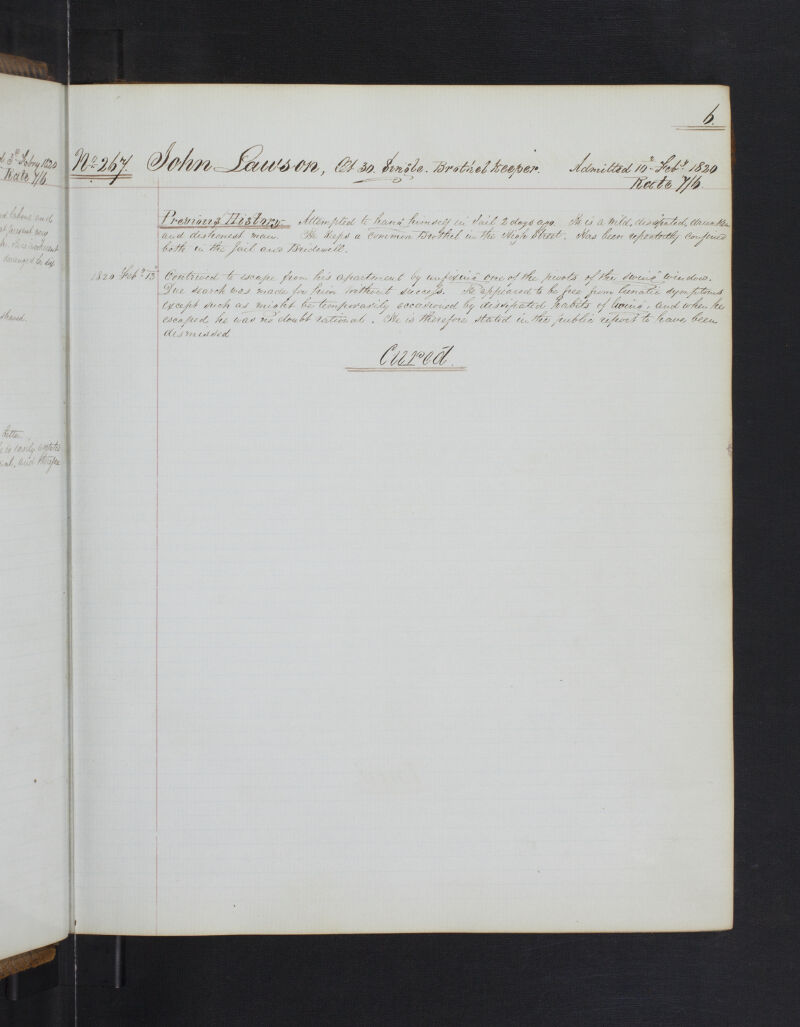 6.
No. 267 John Lawson, Æt 30. Single. Brothel Keeper. Admitted 10th Feby. 1820
Rate 7/6.
Previous History. Attempted to hang himself in Jail 2 days ago. He is a wild, dissipated, drunken
and dishonest man. He keeps a Common Brothel in the High Street. Has been repeatedly confined
both in the Jail and Bridewell.
1820 Feby. 13th Contrived to escape from his apartment by unfixing one of the pivots of the swing window.
Due search was made for him without success. He appeared to be free from lunatic symptoms
except such as might be temporarily occasioned by dissipated habits of living, and when he
escaped he was no doubt rational. He is therefore stated in the public report to have been
dismissed
Cured.
Feby 1820
Rate 7/6
labour and
at present very
better
is easily
and therefore